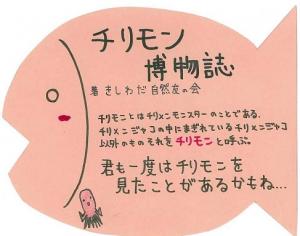 チリモン
博物誌
着 きしわだ自然友の会
チリモンとはチリメンモンスターのことである.
チリメンジャコの中にまぎれているチリメンジャコ
以外のものそれをチリモンと呼ぶ。
君も一度はチリモンを
見たことがあるかもね…